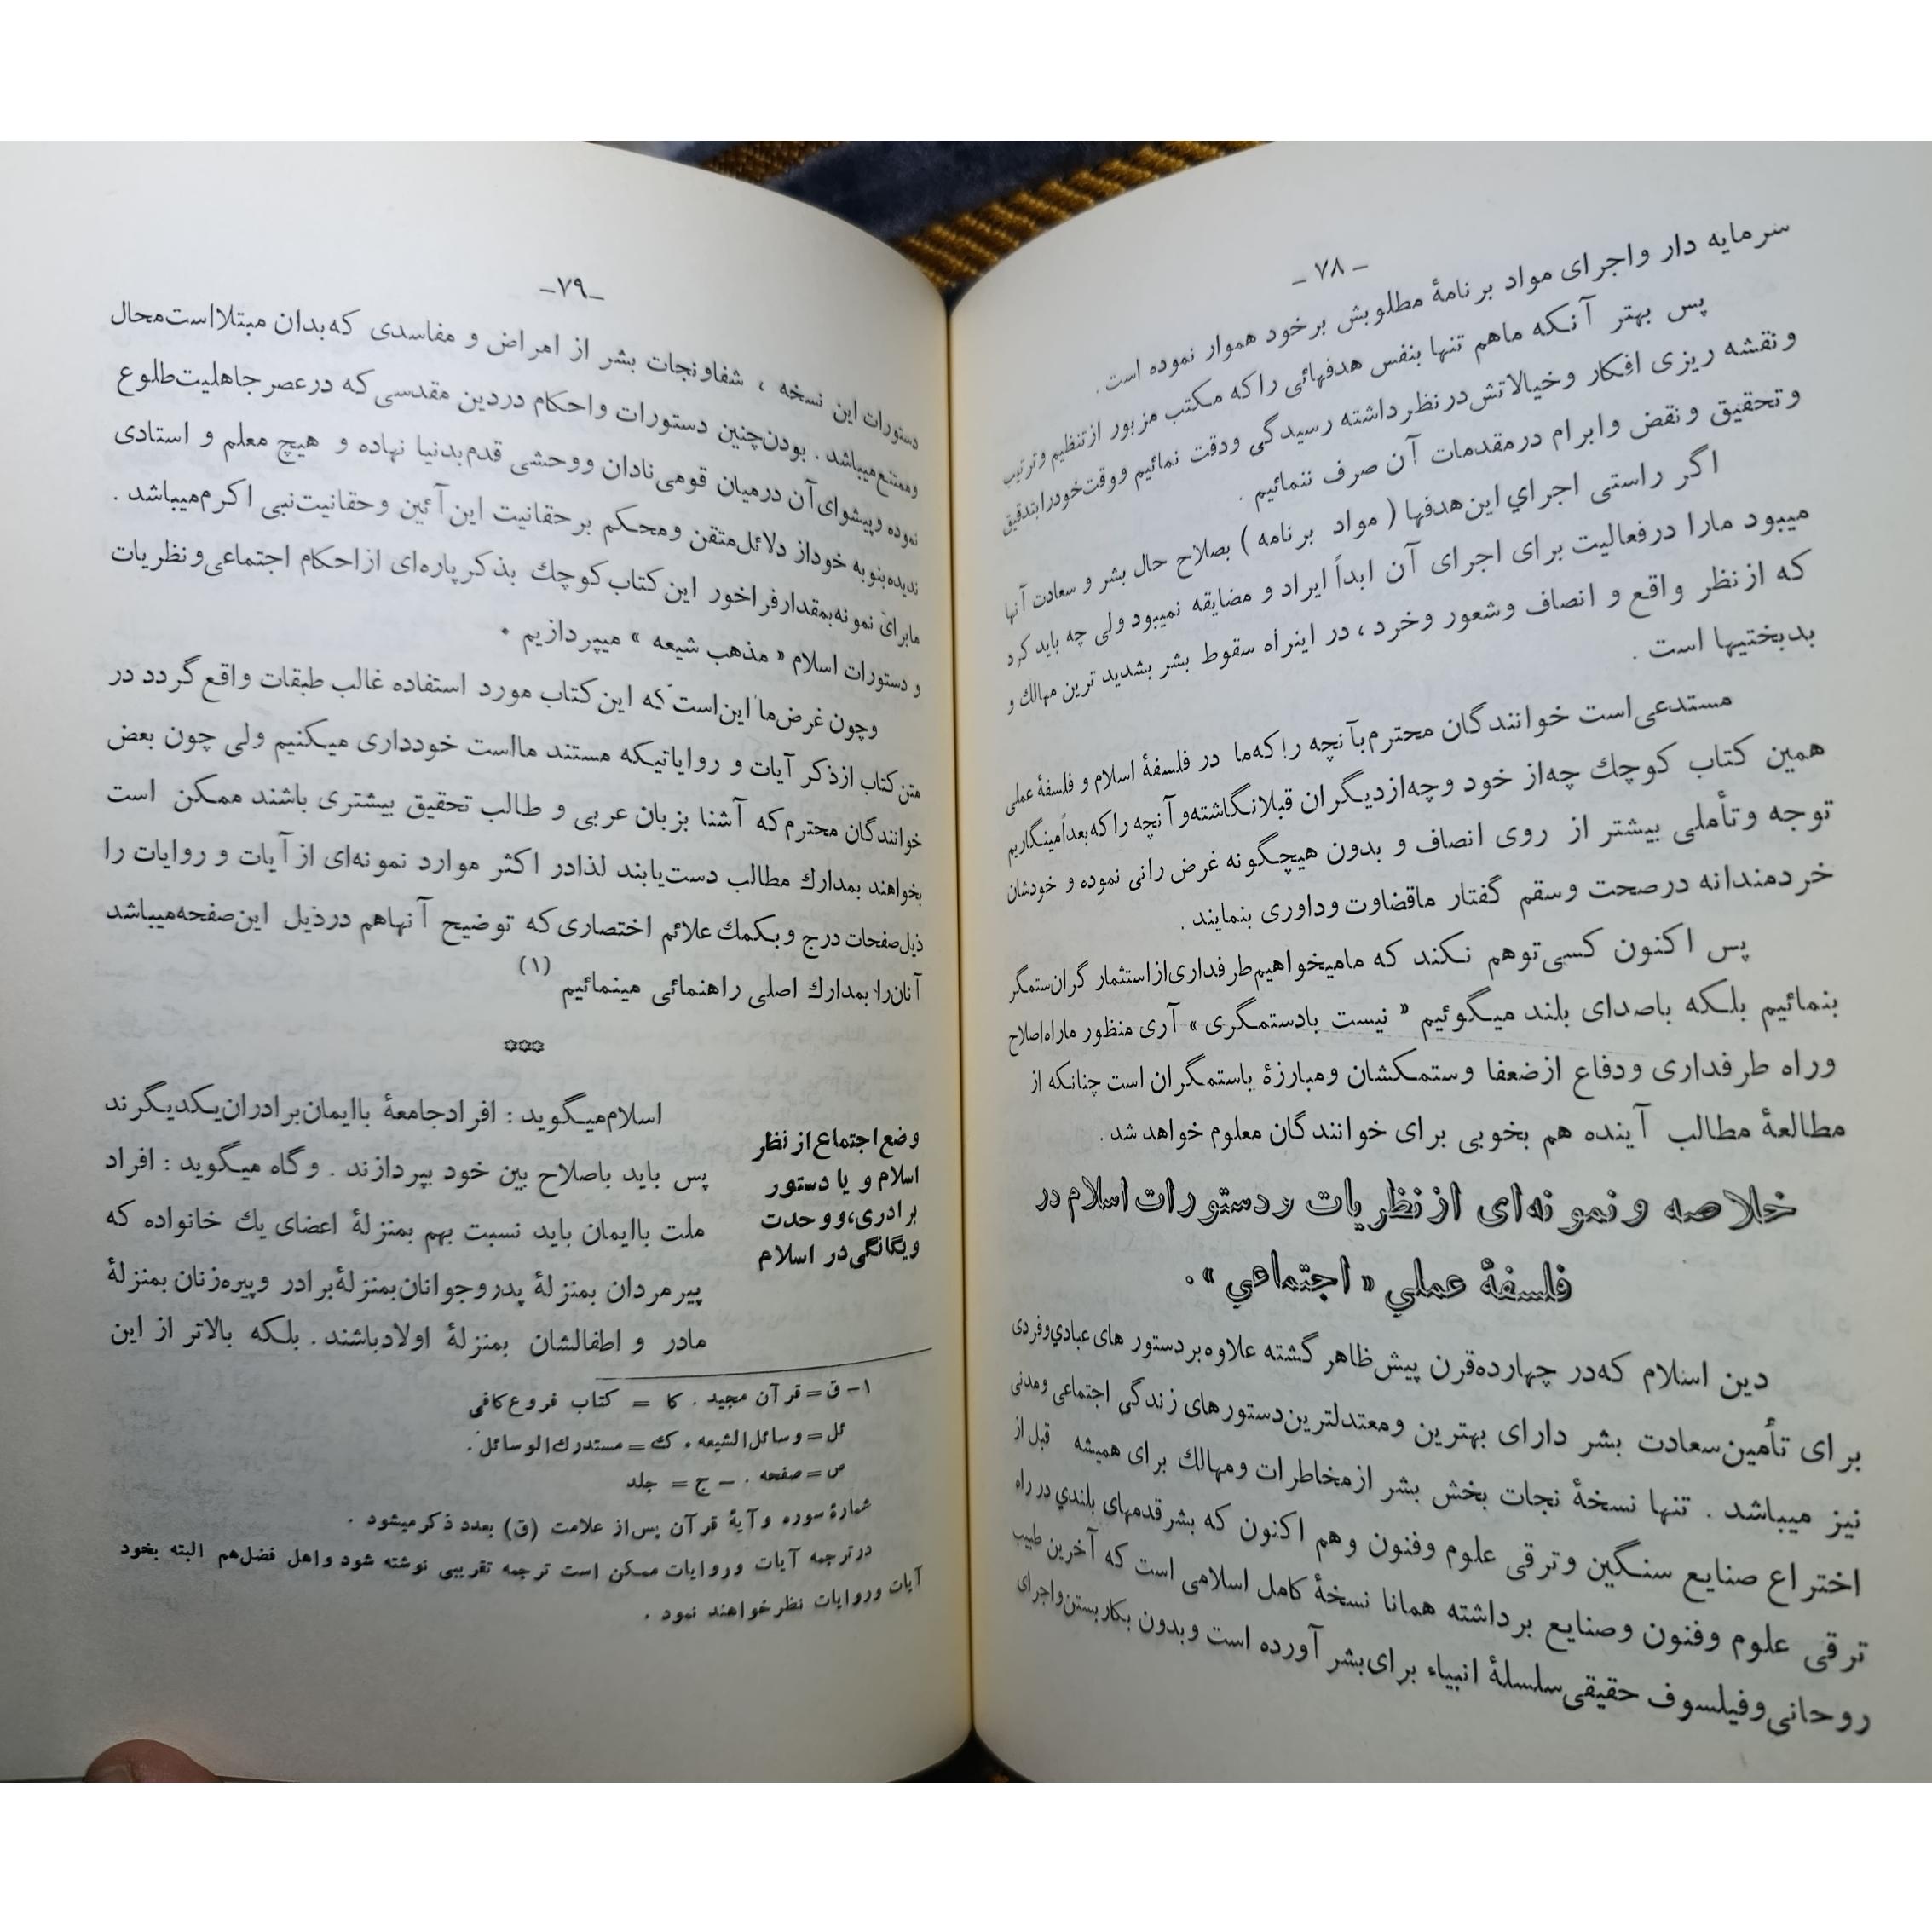 - ۷۸ -
سرمایه دار واجرای مواد برنامهٔ مطلوبش برخود هموار نموده است .
پس بهتر آنکه ماهم تنها بنفس هدفهائی راکه مکتب مزبور ازتنظیم وترتیب
ونقشه ریزی افکار وخیالاتش درنظر داشته رسیدگی ودقت نمائیم ووقت خودرا بتدقیق
وتحقیق ونقض وابرام درمقدمات آن صرف ننمائیم .
اگر راستی اجراي این هدفها ( مواد برنامه ) بصلاح حال بشر و سعادت آنها
میبود مارا درفعالیت برای اجرای آن ابداً ایراد و مضایقه نمیبود ولی چه باید کرد
که ازنظر واقع و انصاف وشعور وخرد ، در اینراه سقوط بشر بشدید ترین مهالك و
بدبختیها است .
مستدعی است خوانندگان محترم بآنچه را که ما در فلسفهٔ اسلام و فلسفهٔ عملی
همین کتاب کوچك چه از خود وچه ازدیگران قبلانگاشته و آنچه را که بعداً مینگاریم
توجه وتأملی بیشتر از روی انصاف و بدون هیچگونه غرض رانی نموده و خودشان
خردمندانه درصحت وسقم گفتار ماقضاوت وداوری بنمایند .
پس اکنون کسی توهم نکند که مامیخواهیم طرفداری از استثمار گران ستمگر
بنمائیم بلکه باصدای بلند میگوئیم « نیست بادستمگری » آری منظور ماراه اصلاح
وراه طرفداری ودفاع ازضعفا وستمکشان ومبارزهٔ باستمگران است چنانکه از
مطالعهٔ مطالب آینده هم بخوبی برای خوانندگان معلوم خواهد شد .
خلاصه و نمونه‌ای از نظریات و دستورات اسلام در
فلسفهٔ عملي « اجتماعي » .
دین اسلام که در چهارده قرن پیش ظاهر گشته علاوه بر دستور های عبادي وفردی
برای تأمین سعادت بشر دارای بهترین ومعتدلترین دستورهای زندگي اجتماعی ومدنی
نیز میباشد . تنها نسخهٔ نجات بخش بشر ازمخاطرات ومهالك برای همیشه قبل از
اختراع صنایع سنگین وترقی علوم وفنون وهم اکنون که بشر قدمهای بلندي در راه
ترقی علوم وفنون وصنایع برداشته همانا نسخهٔ کامل اسلامی است که آخرین طبیب
روحانی وفیلسوف حقیقی سلسلهٔ انبیاء برای بشر آورده است وبدون بکاربستن واجرای
-۷۹-
دستورات این نسخه ، شفاونجات بشر از امراض و مفاسدی که بدان مبتلااست محال
وممتنع میباشد . بودن چنین دستورات واحکام دردین مقدسی که درعصر جاهلیت طلوع
نموده وپیشوای آن درمیان قومی نادان ووحشی قدم بدنیا نهاده و هیچ معلم و استادی
ندیده بنوبه خوداز دلائل متقن ومحکم برحقانیت این آئین وحقانیت نبی اکرم میباشد .
مابرای نمونه بمقدار فراخور این کتاب کوچك بذکر پاره‌ای ازاحکام اجتماعی ونظریات
و دستورات اسلام « مذهب شیعه » میپردازیم .
وچون غرض ما این است که این کتاب مورد استفاده غالب طبقات واقع گردد در
متن کتاب ازذکر آیات و روایاتیکه مستند مااست خودداری میکنیم ولی چون بعض
خوانندگان محترم که آشنا بزبان عربی و طالب تحقیق بیشتری باشند ممکن است
بخواهند بمدارك مطالب دست یابند لذادر اکثر موارد نمونه‌ای ازآیات و روایات را
ذیل صفحات درج وبکمك علائم اختصاری که توضیح آنهاهم درذیل این صفحه میباشد
آنان را بمدارك اصلی راهنمائی مینمائیم (۱)
***
وضع اجتماع از نظر
اسلام و یا دستور
برادری، و وحدت
ویگانگی در اسلام
اسلام میگوید : افراد جامعهٔ باایمان برادران یکدیگرند
پس باید باصلاح بین خود بپردازند . وگاه میگوید : افراد
ملت باایمان باید نسبت بهم بمنزلهٔ اعضای یك خانواده که
پیرمردان بمنزلهٔ پدر وجوانان بمنزلهٔ برادر وپیره زنان بمنزلهٔ
مادر و اطفالشان بمنزلهٔ اولاد باشند . بلکه بالاتر از این
۱- ق = قرآن مجید . کا = کتاب فروع کافی
ئل = وسائل الشیعه . ك = مستدرك الوسائل .
ص = صفحه . - ج = جلد
شمارهٔ سوره وآیهٔ قرآن پس از علامت (ق) بعدد ذکر میشود .
در ترجمه آیات وروایات ممکن است ترجمه تقریبی نوشته شود واهل فضل هم البته بخود
آیات وروایات نظر خواهند نمود .